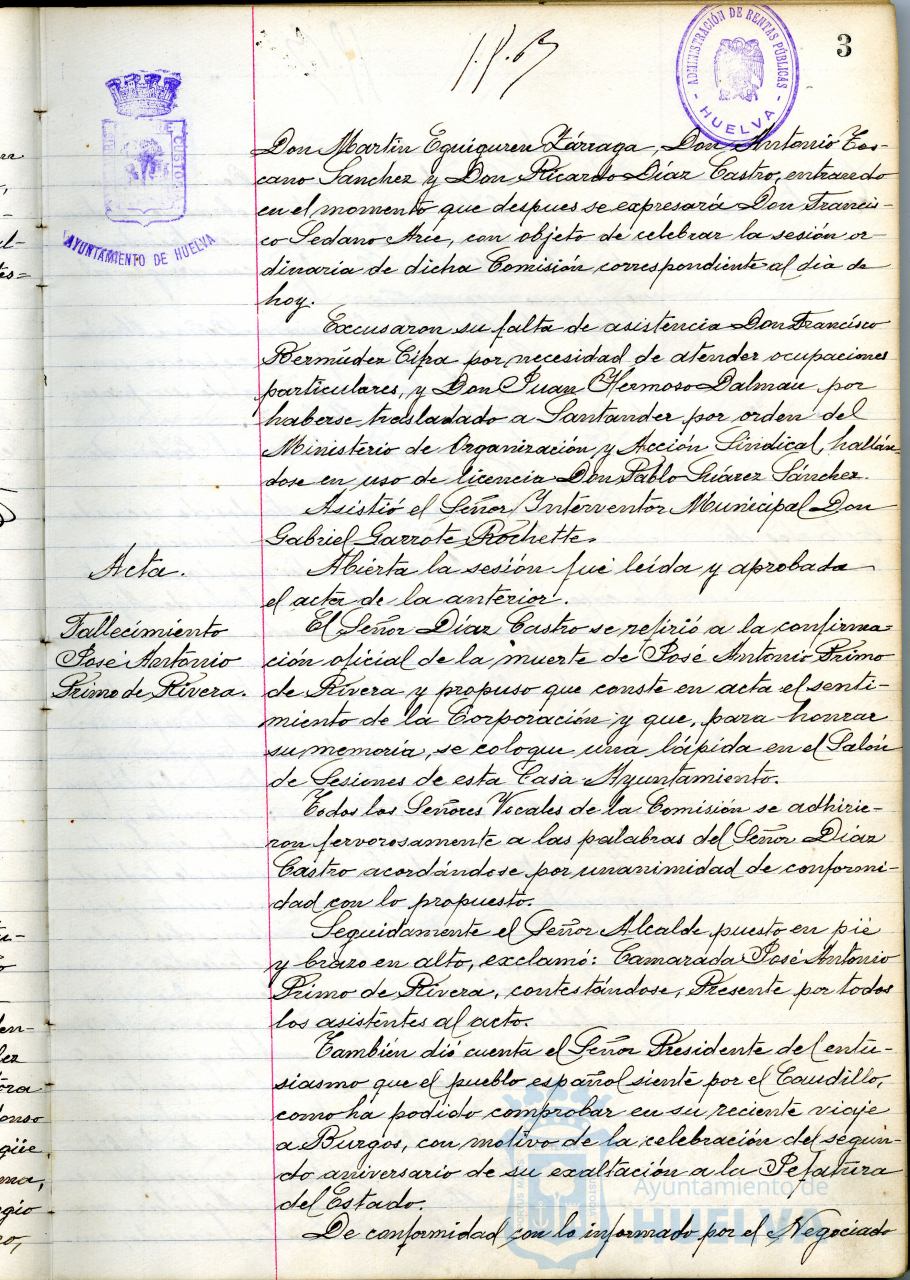 3
ADMINISTRACIÓN DE RENTAS PÚBLICAS
HUELVA
AYUNTAMIENTO DE HUELVA
Don Martin Eguiguren Zárraga, Don Antonio Tos-
cano Sanchez y Don Ricardo Díaz Castro, entrando
en el momento que despues se expresará Don Francis-
co Sedano Arce, con objeto de celebrar la sesión or-
dinaria de dicha Comisión correspondiente al dia de
hoy.
Excusaron su falta de asistencia Don Francisco
Bermúdez Cifra por necesidad de atender ocupaciones
particulares, y Don Juan Hermoso Dalmau por
haberse trasladado a Santander por orden del
Ministerio de Organización y Acción Sindical, hallán-
dose en uso de licencia Don Pablo Suárez Sánchez.
Asistió el Señor Interventor Municipal Don
Gabriel Garrote Rochette.
Acta.
Abierta la sesión fué leída y aprobada
el acta de la anterior.
Fallecimiento
José Antonio
Primo de Rivera.
El Señor Díaz Castro se refirió a la confirma-
ción oficial de la muerte de José Antonio Primo
de Rivera y propuso que conste en acta el senti-
miento de la Corporación y que, para honrar
su memoria, se coloque una lápida en el Salón
de Sesiones de esta Casa Ayuntamiento.
Todos los Señores Vocales de la Comisión se adhirie-
ron fervorosamente a las palabras del Señor Díaz
Castro acordándose por unanimidad de conformi-
dad con lo propuesto.
Seguidamente el Señor Alcalde puesto en pié
y brazo en alto, exclamó: Camarada José Antonio
Primo de Rivera, contestándose, Presente por todos
los asistentes al acto.
También dió cuenta el Señor Presidente del entu-
siasmo que el pueblo español siente por el Caudillo,
como ha podido comprobar en su reciente viaje
a Burgos, con motivo de la celebración del segun-
do aniversario de su exaltación a la Jefatura
del Estado.
De conformidad con lo informado por el Negociado
Ayuntamiento de
HUELVA